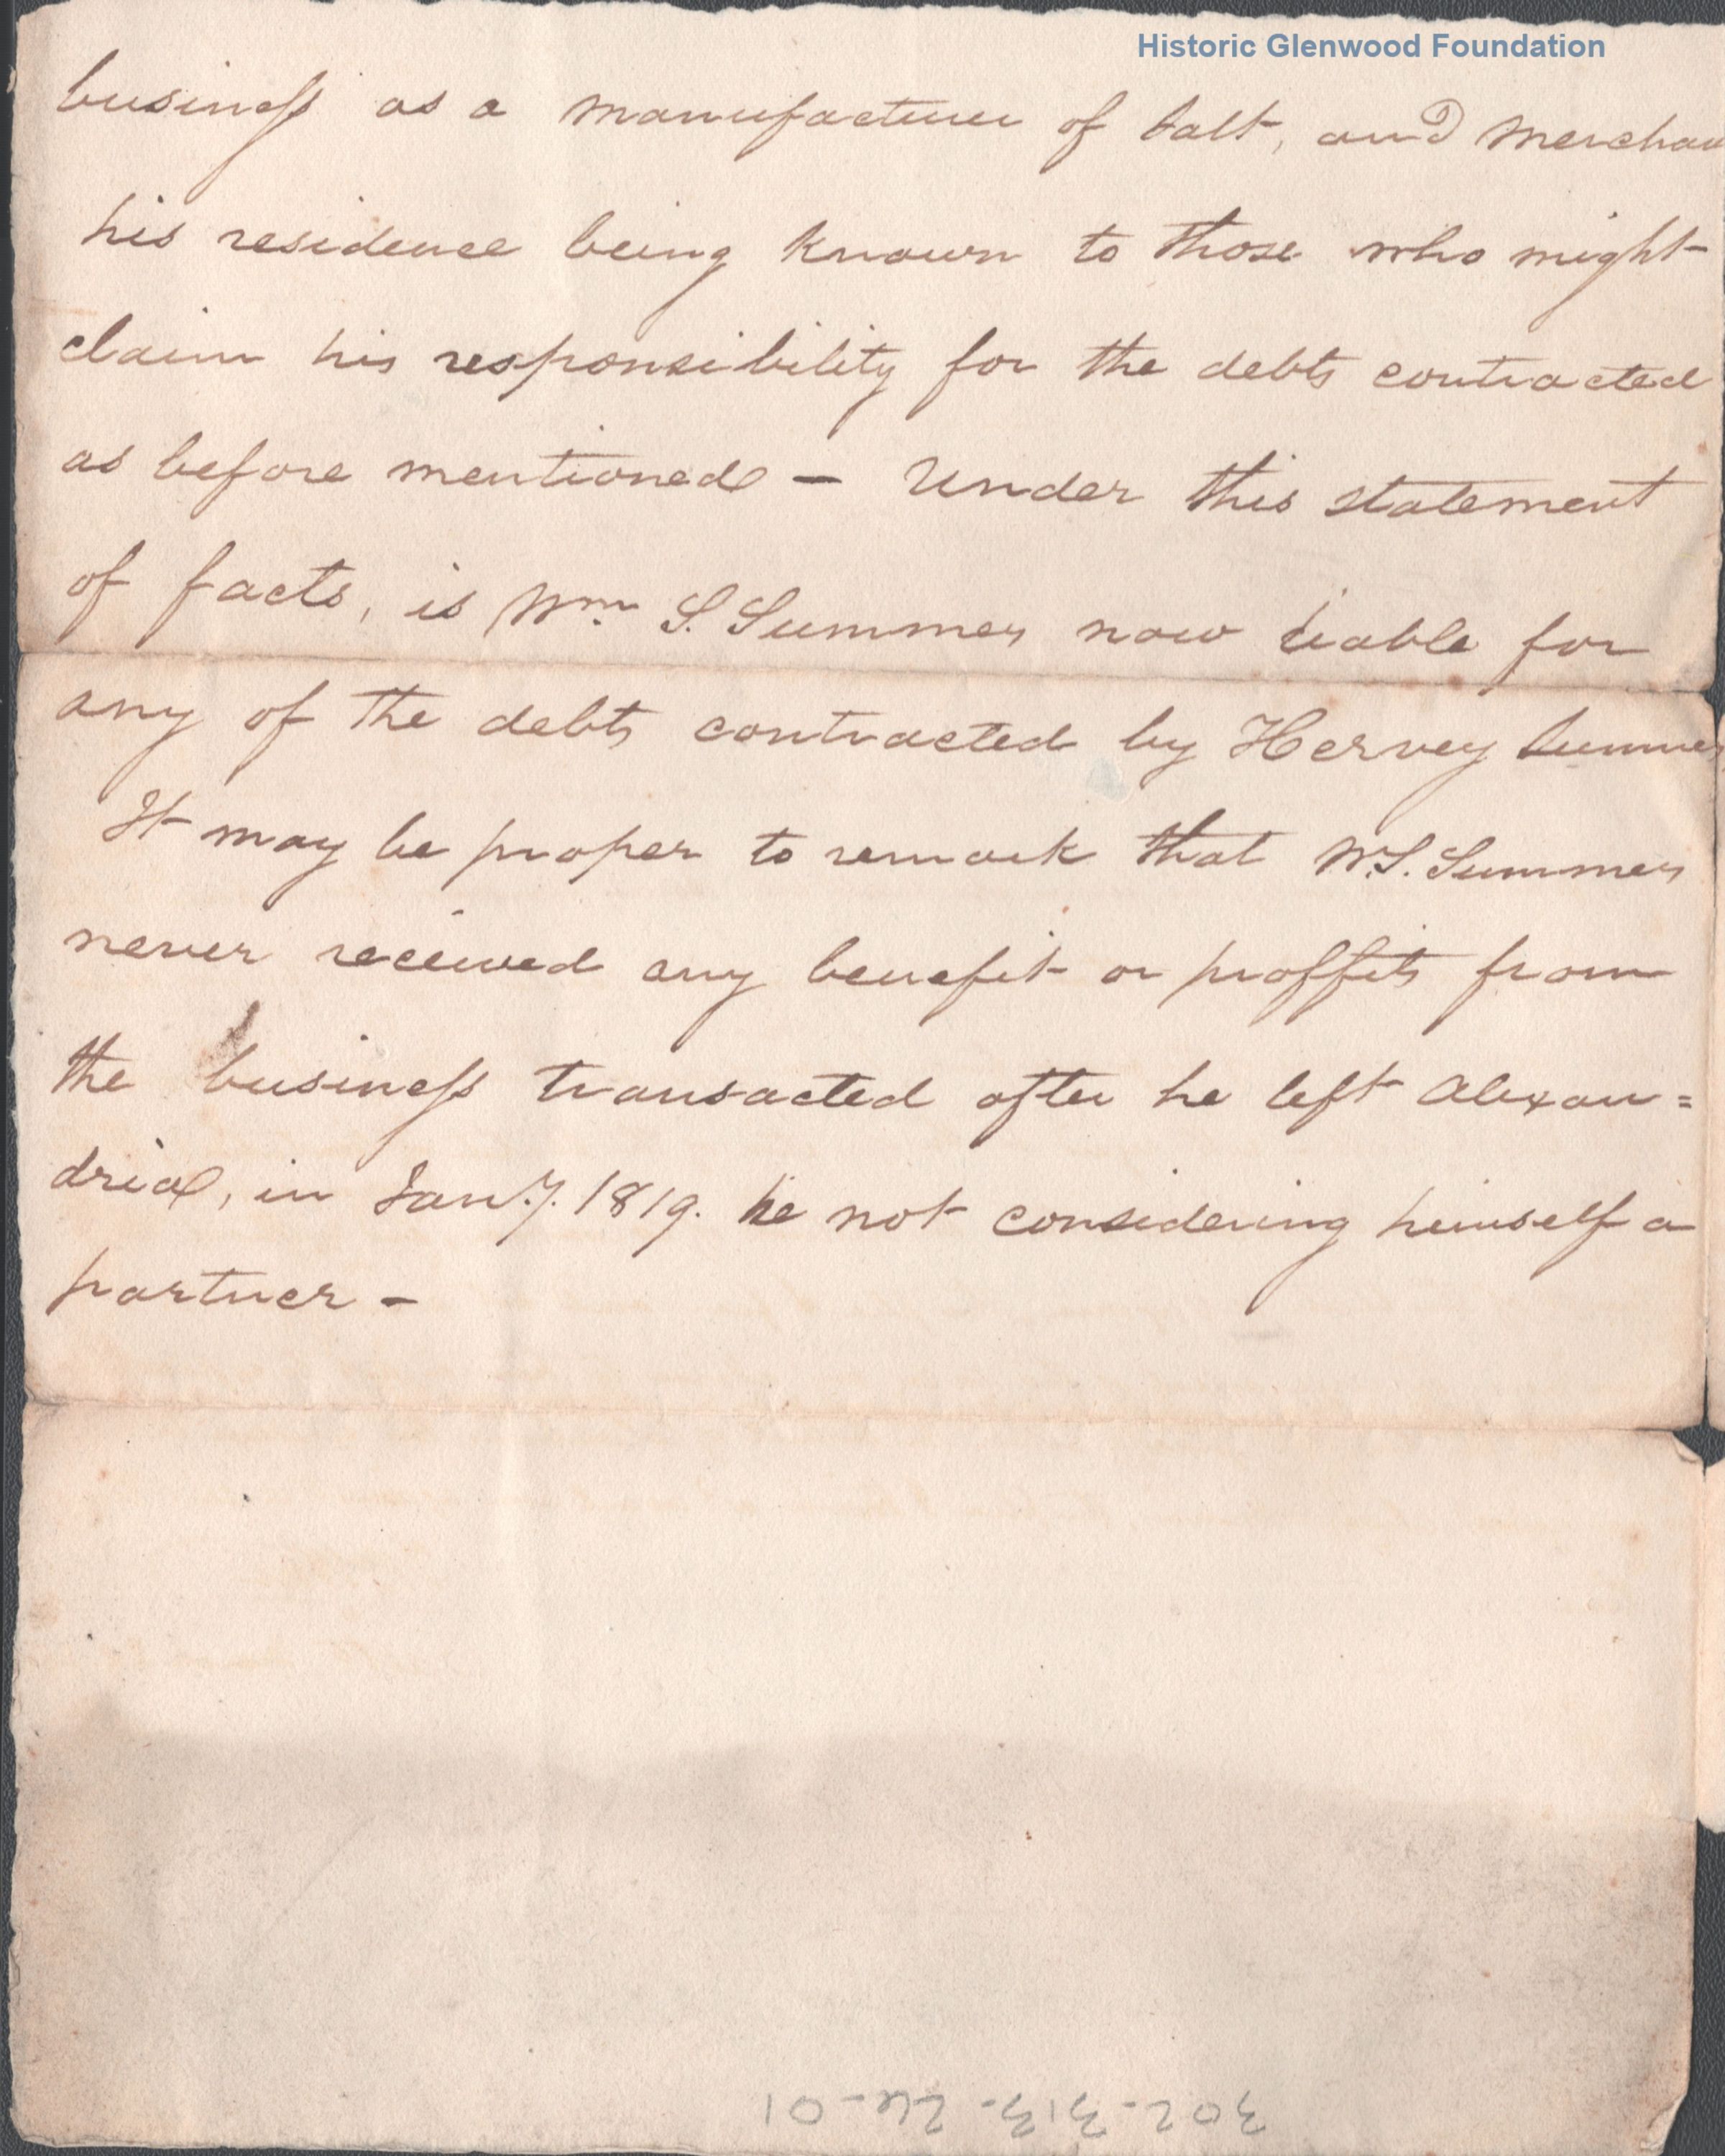 Historic Glenwood Foundation
business as a manufacturer of Salt, and Merchan
his residence being known to those who might
claim his responsibility for the debts contracted
as before mentioned – Under this statement
of facts, is Wm. S. Summers now liable for
any of the debts contracted by Hervey Summers
It may be proper to remark that W.S. Summers
never received any benefit or proffits from
the business transacted after he left Alexan=
dria, in Jany. 1819. he not considering himself a
partner –
302-313-26-01